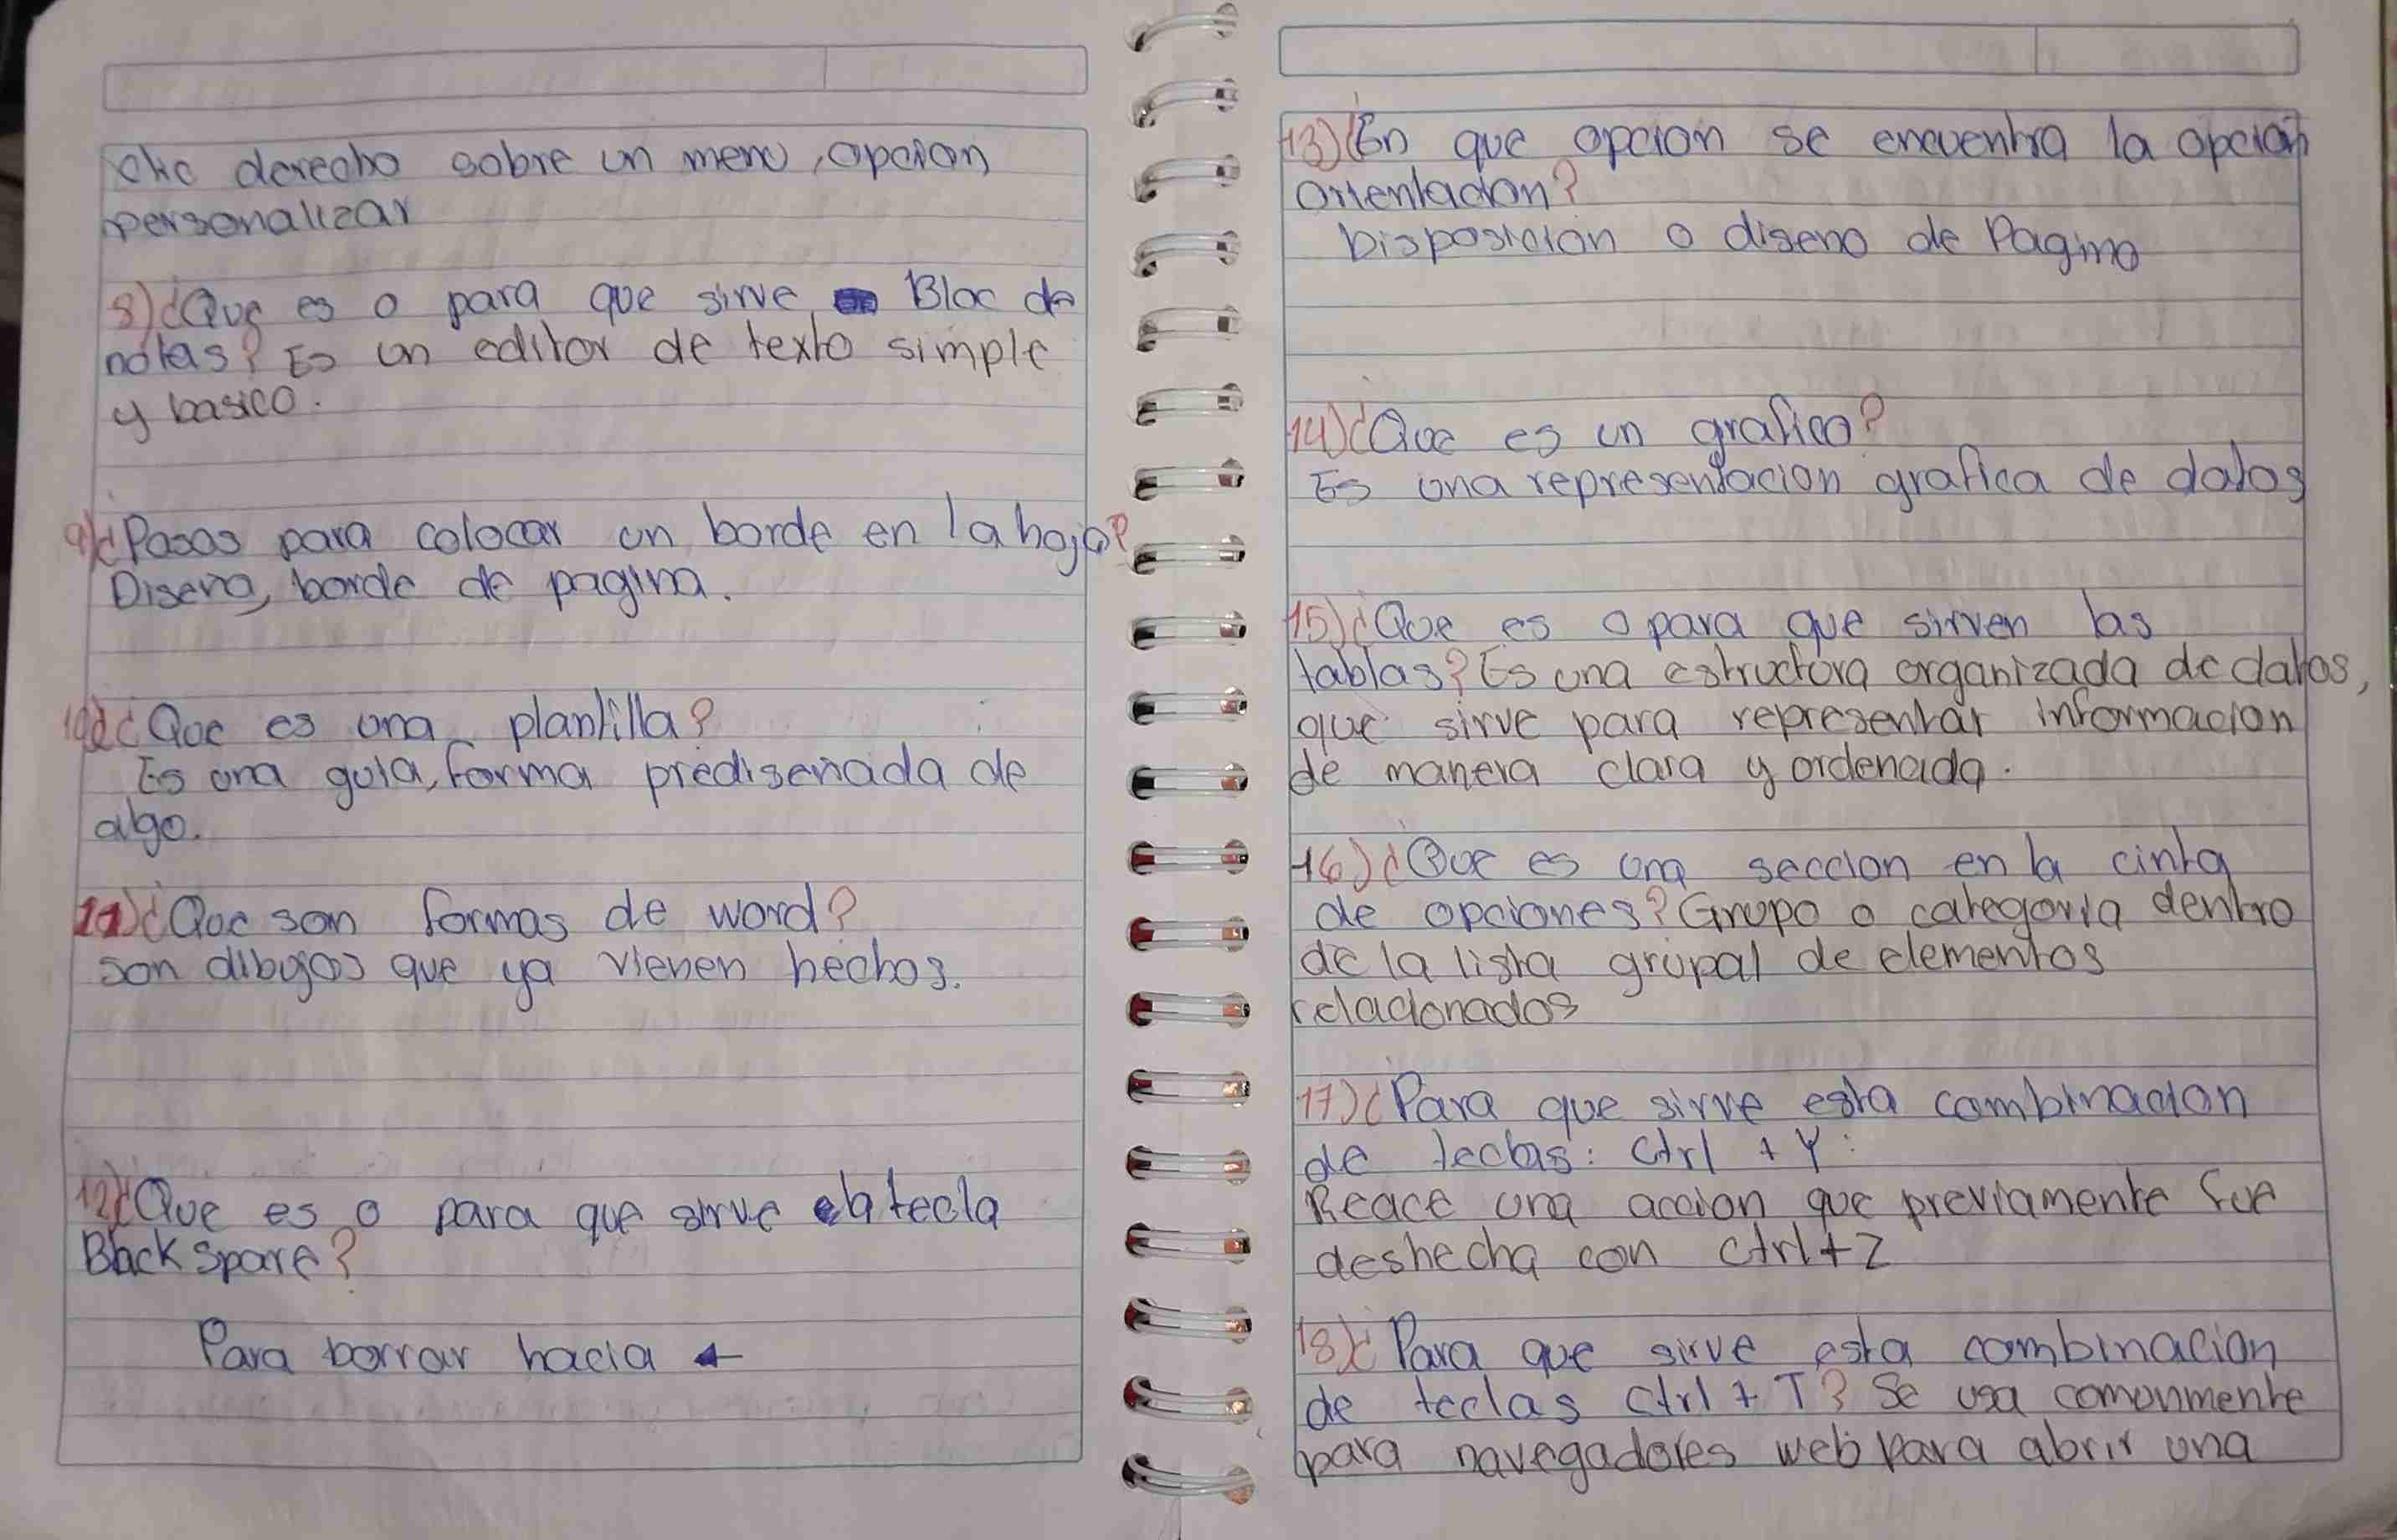 clic derecho sobre un menu, opcion
personalizar
8) ¿Que es o para que sirve Bloc de
notas? Es un editor de texto simple
y basico.
9) ¿Pasos para colocar un borde en la hoja?
Diseno, borde de pagina.
10) ¿Que es una plantilla?
Es una guia, forma predisenada de
algo.
11) ¿Que son formas de word?
son dibujos que ya vienen hechos.
12) ¿Que es o para que sirve la tecla
Back Space?
Para borrar hacia ←
13) ¿En que opcion se encuentra la opcion
orientacion?
Disposicion o diseno de Pagina
14) ¿Que es un grafico?
Es una representacion grafica de datos
15) ¿Que es o para que sirven las
tablas? Es una estructura organizada de datos,
que sirve para representar informacion
de manera clara y ordenada.
16) ¿Que es una seccion en la cinta
de opciones? Grupo o categoria dentro
de la lista grupal de elementos
relacionados
17) ¿Para que sirve esta combinacion
de teclas: Ctrl + Y:
Reace una accion que previamente fue
deshecha con Ctrl+Z
18) ¿Para que sirve esta combinacion
de teclas Ctrl + T? Se usa comunmente
para navegadores web para abrir una